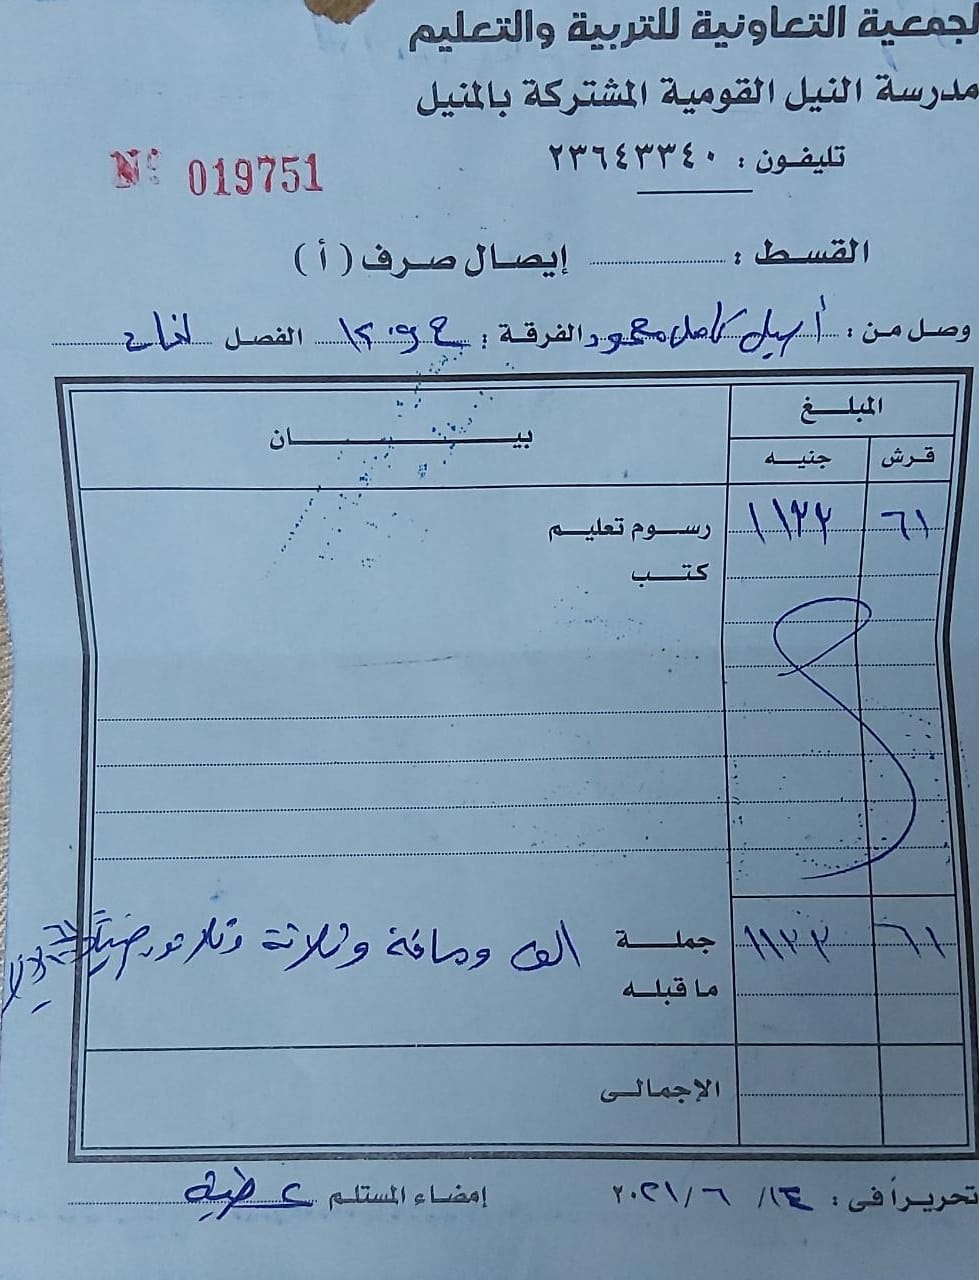 لجمعية التعاونية للتربية والتعليم
مدرسة النيل القومية المشتركة بالمنيل
تليفون : ٢٣٦٤٣٣٤٠
Nº 019751
القسط : إيصال صرف ( أ )
وصل من : أسيل كامل محمود الفرقة : الفصل
المبلغ
قرش جنيه بيان
٦١ ١١٣٣ رسوم تعليم
كتب
٦١ ١١٣٣ جملة الف ومائة وثلاثة وثلاثون جنيهاً
ما قبله
الإجمالى
تحريراً فى : ١٤/ ٦ /٢٠٢١ إمضاء المستلم عطية